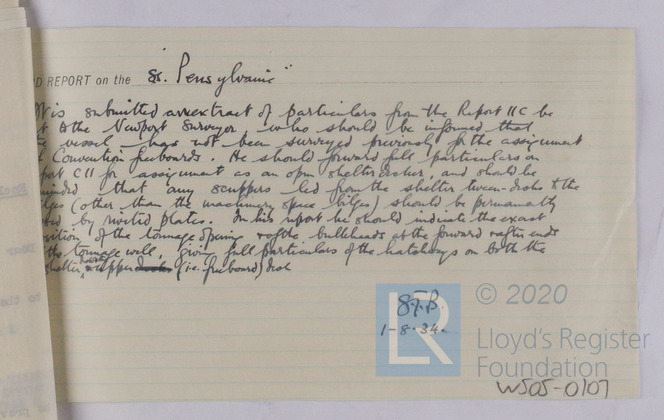 D REPORT on the ss. "Pensylvanie"
It is submitted an extract of particulars from the Report 11C be
t to the Newport Surveyor who should be informed that
e vessel has not been surveyed previously for the assignment
Convention freeboards. He should forward full particulars on
port C11 for assignment as an open shelterdecker, and should be
minded that any scuppers led from the shelter tween-decks to the
lges (other than the machinery space bilges) should be permanently
sed by riveted plates. In his report he should indicate the exact
osition of the tonnage opening & of the bulkheads at the forward & after ends
the tonnage well, giving full particulars of the hatchways on both the
shelter & upper (i.e. freeboard) deck
S.F.B.
1-8-34.
LR
© 2020
Lloyd's Register
Foundation
W505-0107